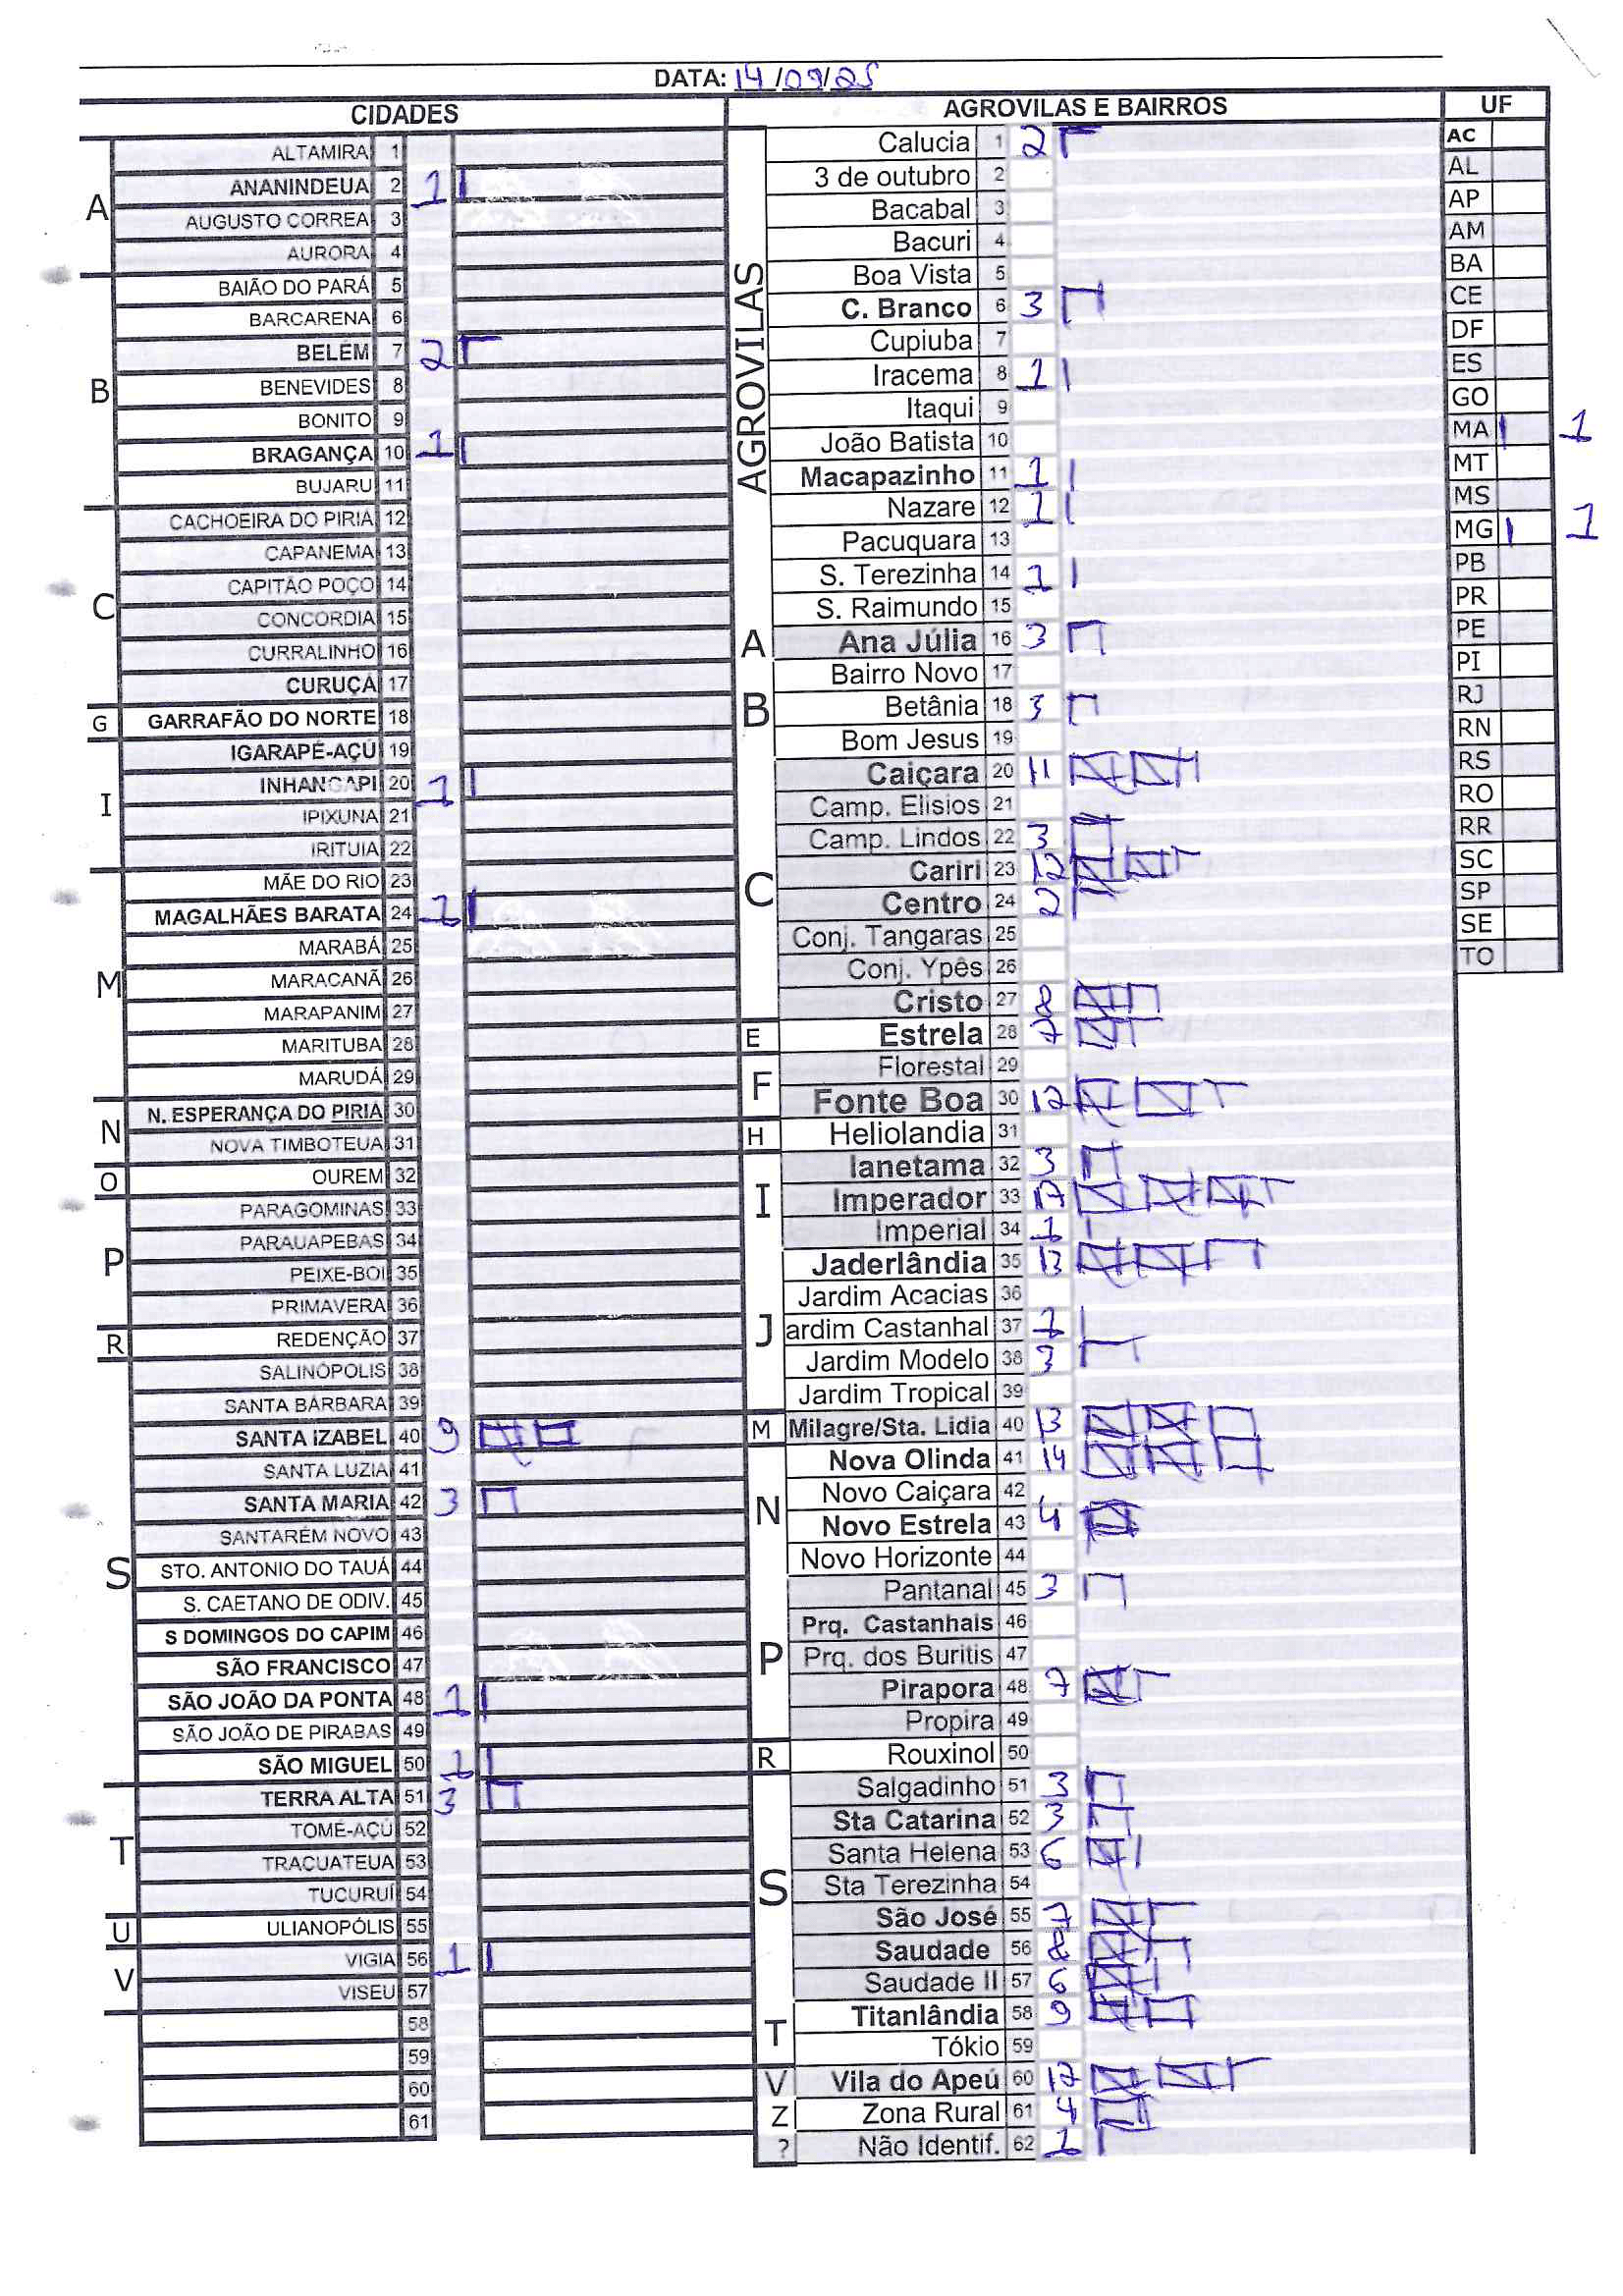 DATA: 14/09/25
CIDADES
A
ALTAMIRA 1
ANANINDEUA 2 1
AUGUSTO CORREA 3
AURORA 4
B
BAIÃO DO PARÁ 5
BARCARENA 6
BELÉM 7 2
BENEVIDES 8
BONITO 9
BRAGANÇA 10 1
BUJARU 11
C
CACHOEIRA DO PIRIÁ 12
CAPANEMA 13
CAPITÃO POÇO 14
CONCORDIA 15
CURRALINHO 16
CURUÇÁ 17
G
GARRAFÃO DO NORTE 18
I
IGARAPÉ-AÇÚ 19
INHANGAPI 20 1
IPIXUNA 21
IRITUIA 22
M
MÃE DO RIO 23
MAGALHÃES BARATA 24 1
MARABÁ 25
MARACANÃ 26
MARAPANIM 27
MARITUBA 28
MARUDÁ 29
N
N. ESPERANÇA DO PIRIÁ 30
NOVA TIMBOTEUA 31
O
OUREM 32
P
PARAGOMINAS 33
PARAUAPEBAS 34
PEIXE-BOI 35
PRIMAVERA 36
R
REDENÇÃO 37
S
SALINÓPOLIS 38
SANTA BÁRBARA 39
SANTA IZABEL 40 9
SANTA LUZIA 41
SANTA MARIA 42 3
SANTARÉM NOVO 43
STO. ANTONIO DO TAUÁ 44
S. CAETANO DE ODIV. 45
S DOMINGOS DO CAPIM 46
SÃO FRANCISCO 47
SÃO JOÃO DA PONTA 48 1
SÃO JOÃO DE PIRABAS 49
SÃO MIGUEL 50 1
T
TERRA ALTA 51 3
TOMÉ-AÇÚ 52
TRACUATEUA 53
TUCURUÍ 54
U
ULIANOPÓLIS 55
V
VIGIA 56 1
VISEU 57
58
59
60
61
AGROVILAS E BAIRROS
AGROVILAS
Calucia 1 2
3 de outubro 2
Bacabal 3
Bacuri 4
Boa Vista 5
C. Branco 6 3
Cupiuba 7
Iracema 8 1
Itaqui 9
João Batista 10
Macapazinho 11 1
Nazare 12 1
Pacuquara 13
S. Terezinha 14 1
S. Raimundo 15
A
Ana Júlia 16 3
B
Bairro Novo 17
Betânia 18 3
Bom Jesus 19
C
Caiçara 20 11
Camp. Elisios 21
Camp. Lindos 22 3
Cariri 23 12
Centro 24 2
Conj. Tangaras 25
Conj. Ypês 26
Cristo 27 8
E
Estrela 28 7
F
Florestal 29
Fonte Boa 30 12
H
Heliolandia 31
I
Ianetama 32 3
Imperador 33 17
Imperial 34 1
J
Jaderlândia 35 13
Jardim Acacias 36
ardim Castanhal 37 1
Jardim Modelo 38 3
Jardim Tropical 39
M
Milagre/Sta. Lidia 40 13
N
Nova Olinda 41 14
Novo Caiçara 42
Novo Estrela 43 4
Novo Horizonte 44
P
Pantanal 45 3
Prq. Castanhais 46
Prq. dos Buritis 47
Pirapora 48 7
Propira 49
R
Rouxinol 50
S
Salgadinho 51 3
Sta Catarina 52 3
Santa Helena 53 6
Sta Terezinha 54
São José 55 7
Saudade 56 8
Saudade II 57 6
T
Titanlândia 58 9
Tókio 59
V
Vila do Apeú 60 12
Z
Zona Rural 61 4
?
Não Identif. 62 1
UF
AC
AL
AP
AM
BA
CE
DF
ES
GO
MA 1
MT
MS
MG 1
PB
PR
PE
PI
RJ
RN
RS
RO
RR
SC
SP
SE
TO